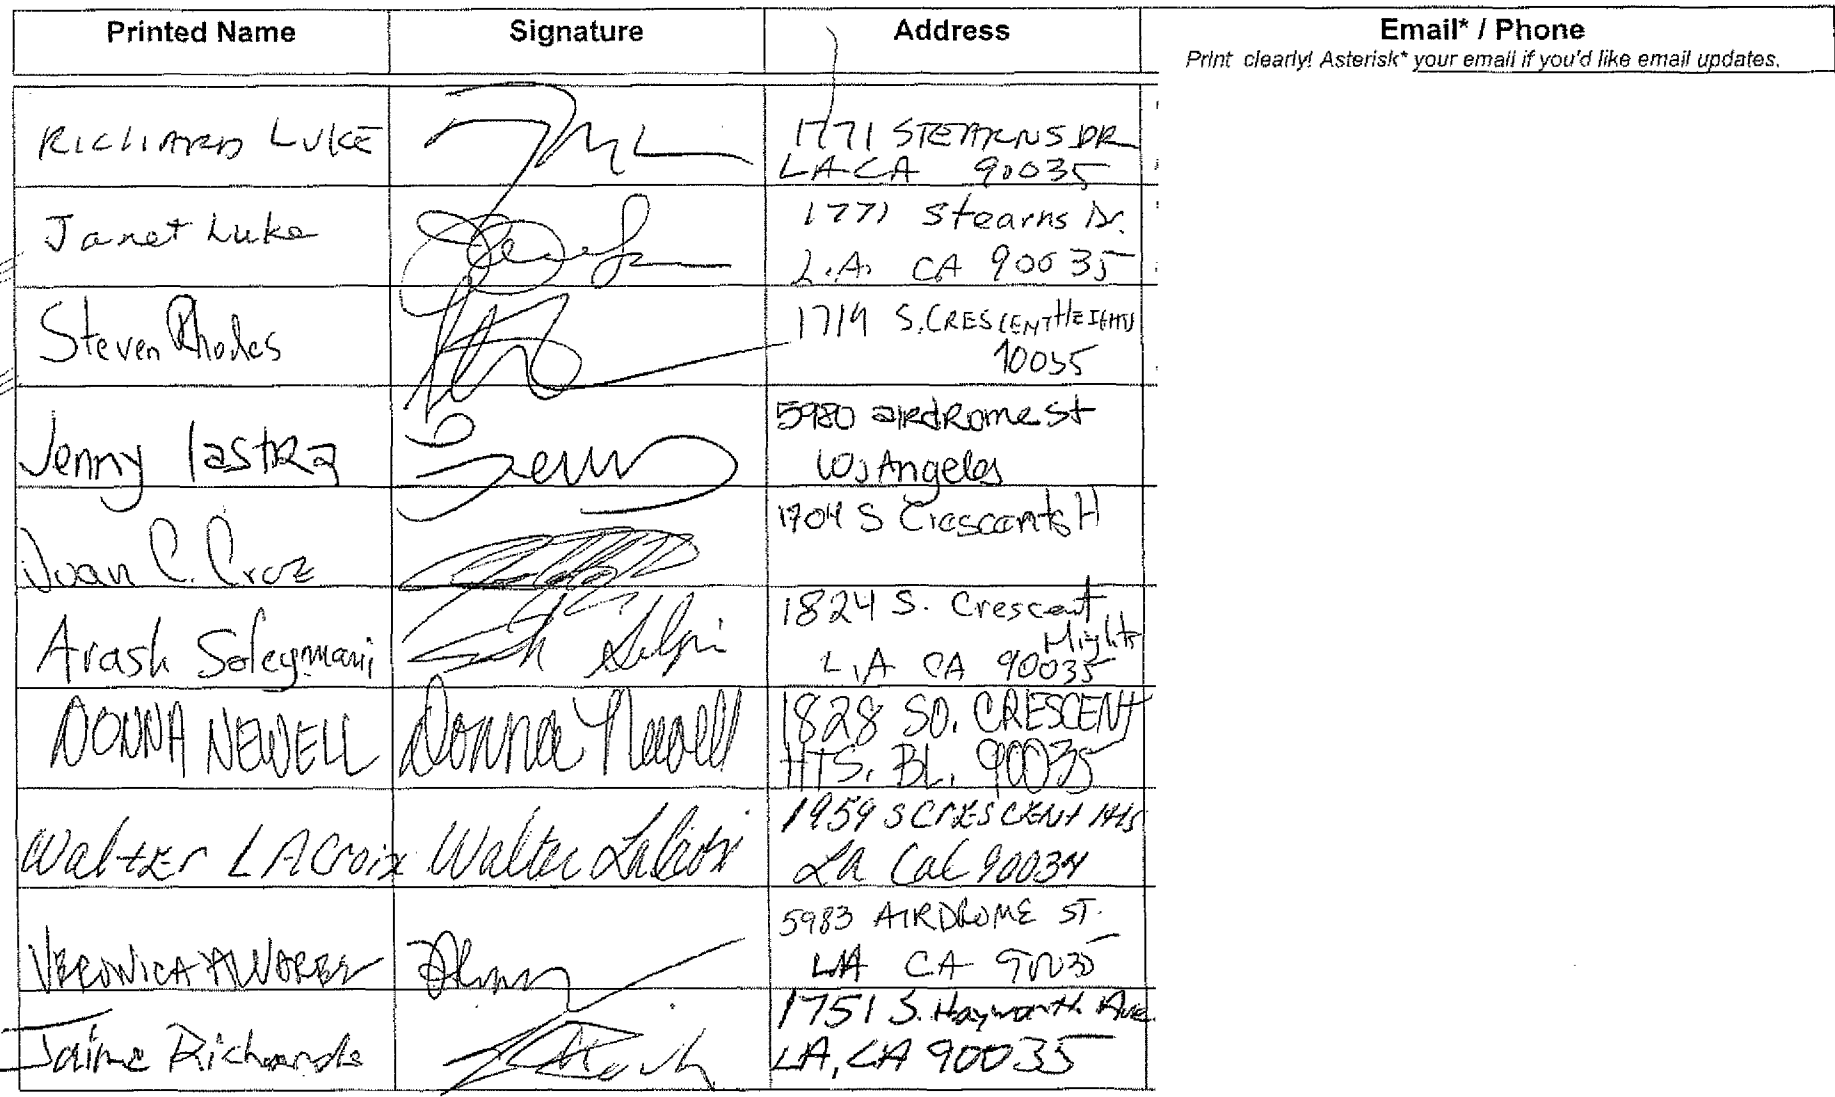 Printed Name Signature Address Email* / Phone
Print clearly! Asterisk* your email if you'd like email updates.
RICHARD LUKE 1771 STEARNS DR
LA CA 90035
Janet Luke 1771 Stearns Dr.
L.A. CA 90035
Steven Rhodes 1719 S. CRESCENT HEIGHTS
90035
Jenny lastra Jenny 5980 airdrome st
Los Angeles
Juan C. Cruz 1704 S Crescents H
Arash Soleymani 1824 S. Crescent
Hights
L.A CA 90035
DONNA NEWELL Donna Newell 1828 SO. CRESCENT
HTS. BL. 90035
Walter LACroix Walter LaCroix 1959 S CRESCENT Hts
La Cal 90034
VERONICA ALVAREZ 5983 AIRDROME ST.
LA CA 90035
Jaime Richards 1751 S. Hayworth Ave.
LA, CA 90035